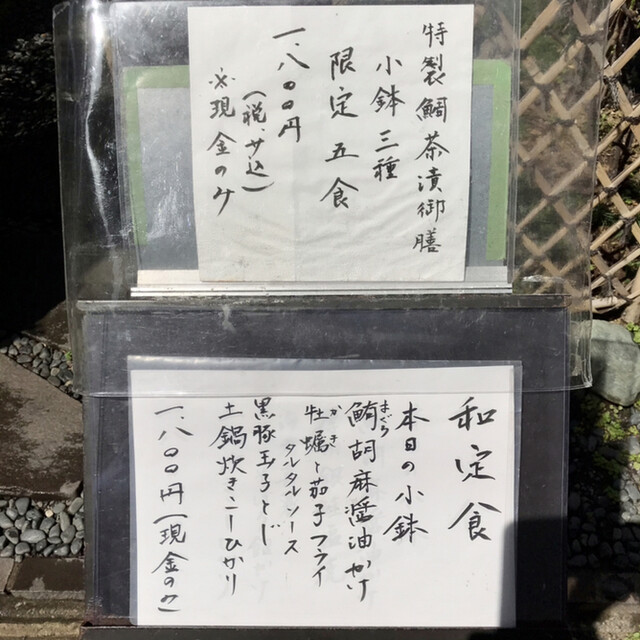 特製鯛茶漬御膳
小鉢三種
限定五食
一、八〇〇円
(税、サ込)
※現金のみ
和定食
本日の小鉢
鮪胡麻醤油かけ
まぐろ
牡蠣と茄子フライ
かき
タルタルソース
黒豚玉子とじ
土鍋炊きこしひかり
一、八〇〇円(現金のみ)